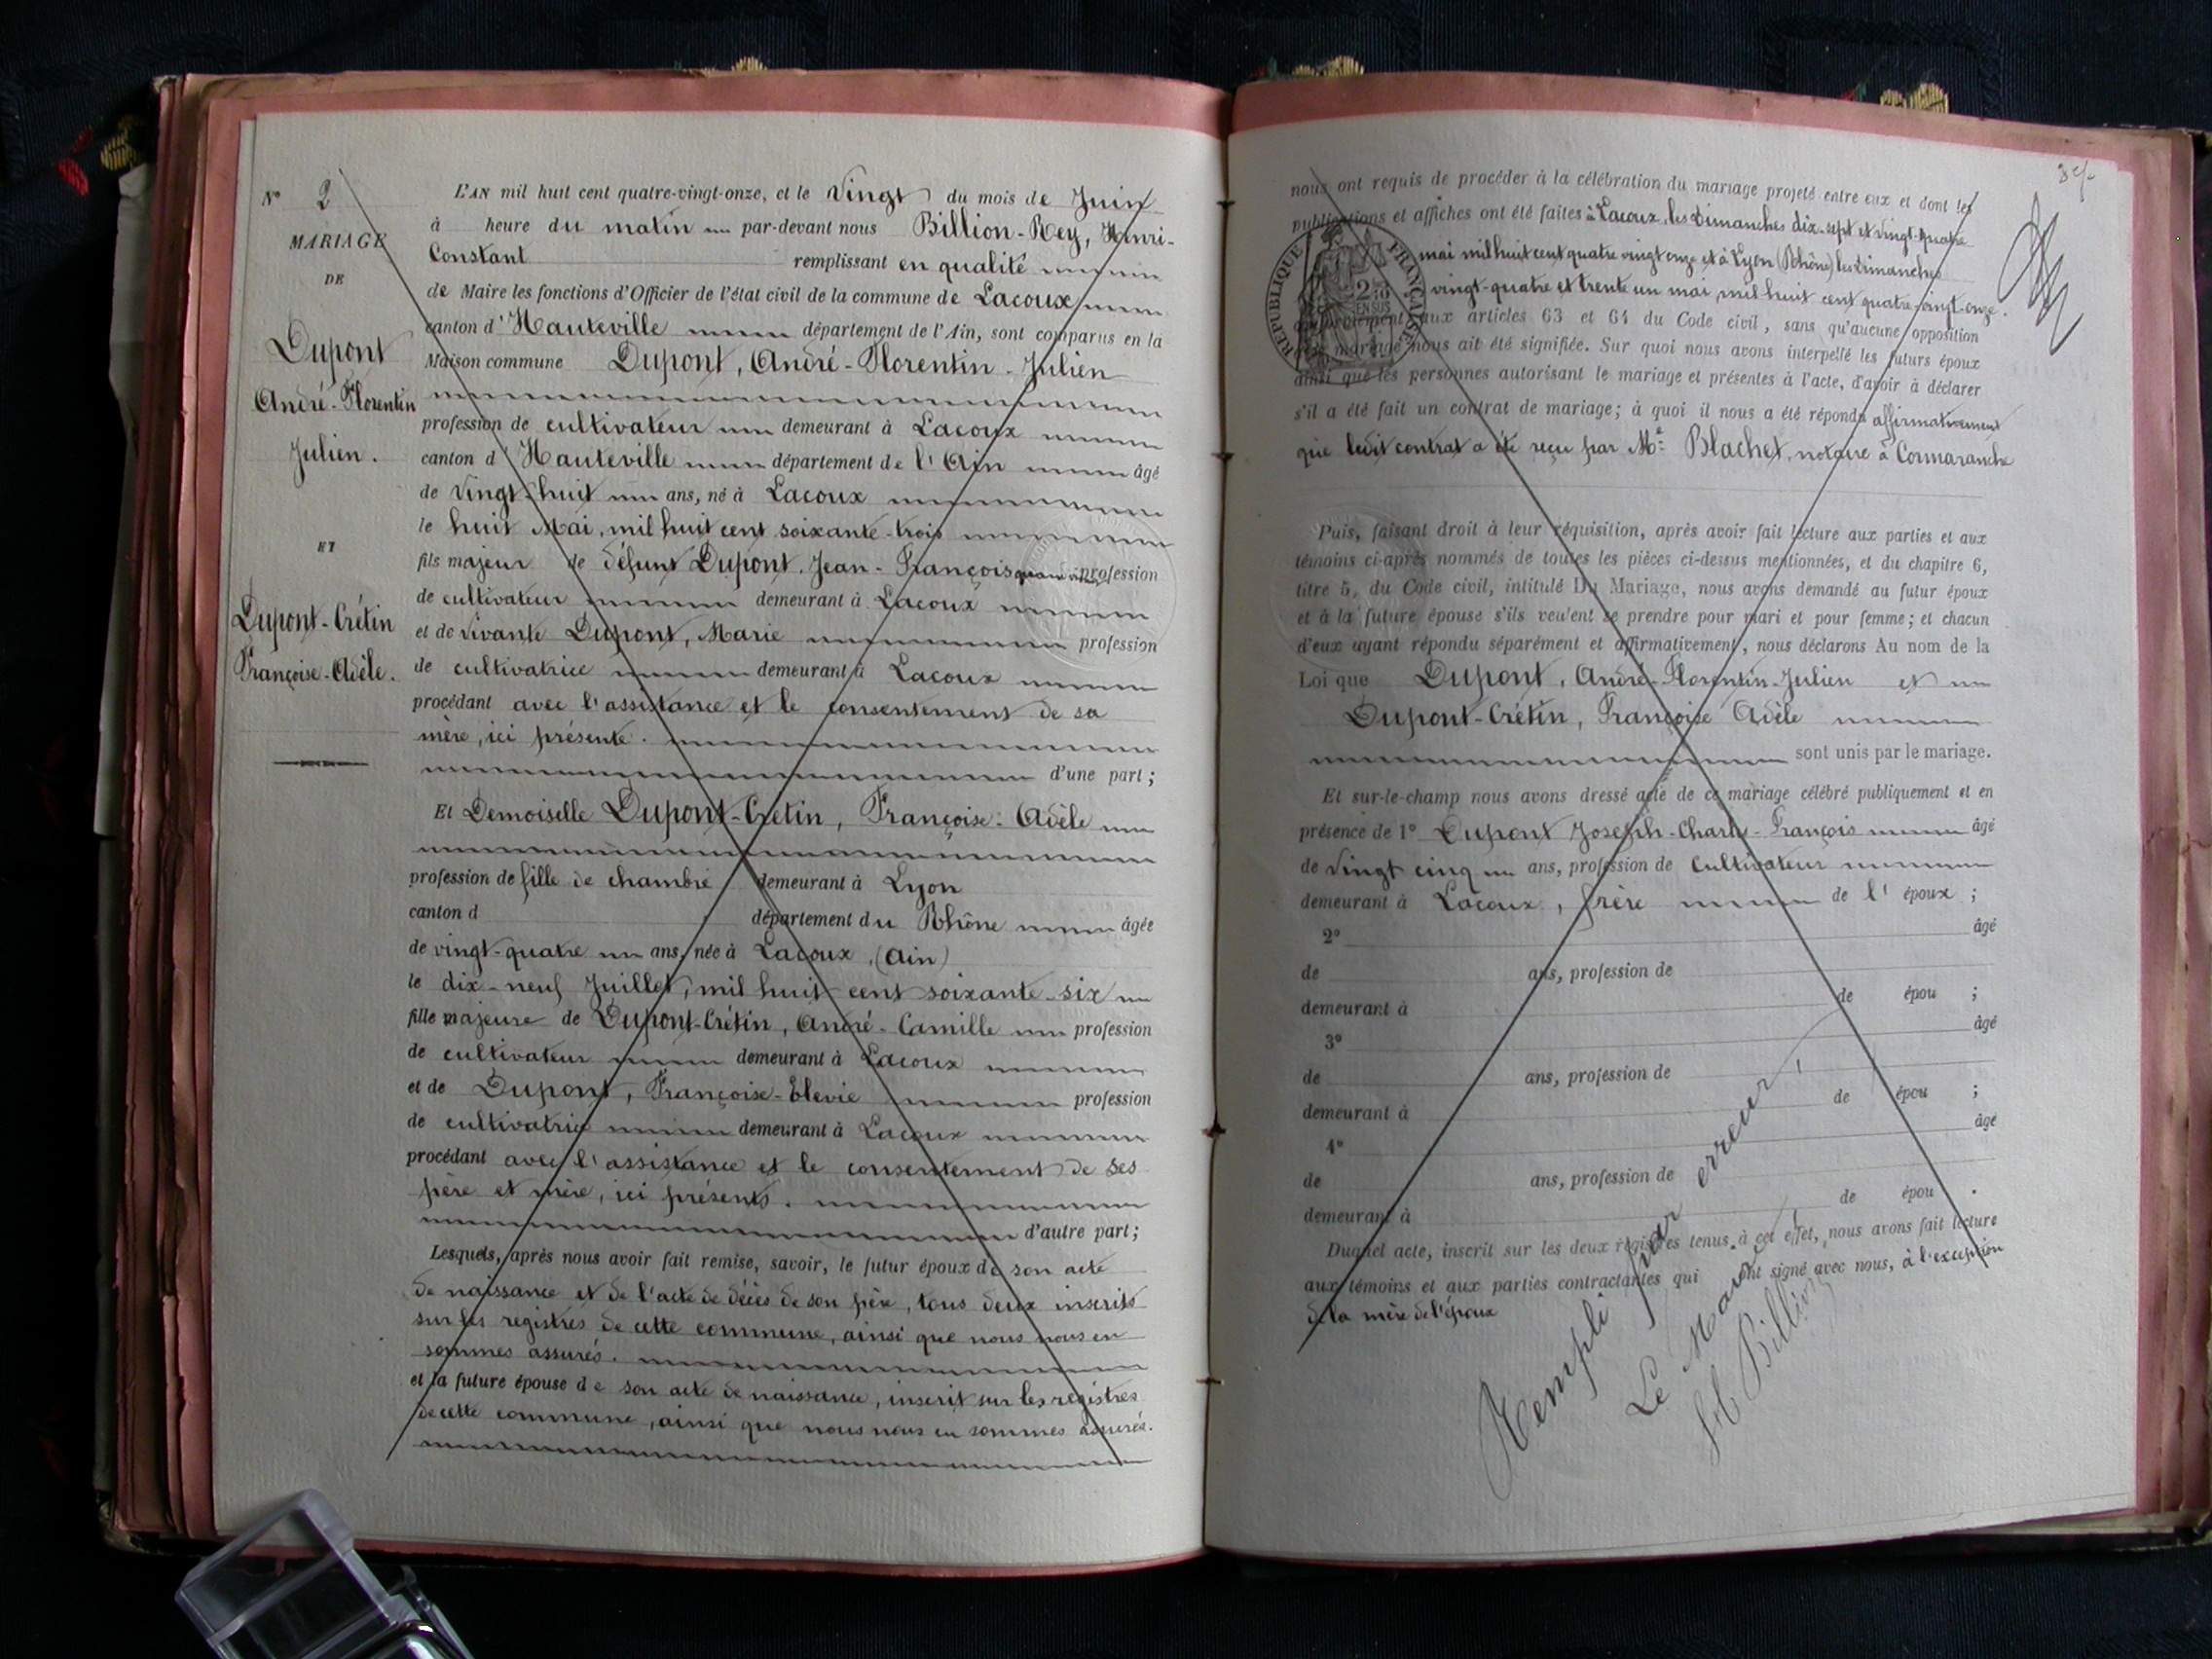 N° 2
MARIAGE
DE
Dupont
André-Florentin
Julien.
ET
Dupont-Crétin
Françoise-Adèle.
L'AN mil huit cent quatre-vingt-onze, et le Vingt du mois de Juin
à heure du matin par-devant nous Billion-Rey, Henri-
Constant remplissant en qualité
de Maire les fonctions d'Officier de l'état civil de la commune de Lacoux
canton d'Hauteville département de l'Ain, sont comparus en la
Maison commune Dupont, André-Florentin-Julien
profession de cultivateur demeurant à Lacoux
canton d'Hauteville département de l'Ain âgé
de Vingt-huit ans, né à Lacoux
le huit Mai, mil huit cent soixante-trois
fils majeur de défunt Dupont, Jean-François quand vivait profession
de cultivateur demeurant à Lacoux
et de vivante Dupont, Marie profession
de cultivatrice demeurant à Lacoux
procédant avec l'assistance et le consentement de sa
mère, ici présente.
d'une part;
Et Demoiselle Dupont-Crétin, Françoise-Adèle
profession de fille de chambre demeurant à Lyon
canton d département du Rhône âgée
de vingt-quatre ans, née à Lacoux, (Ain)
le dix-neuf Juillet, mil huit cent soixante-six
fille majeure de Dupont-Crétin, André-Camille profession
de cultivateur demeurant à Lacoux
et de Dupont, Françoise-Elevie profession
de cultivatrice demeurant à Lacoux
procédant avec l'assistance et le consentement de ses
père et mère, ici présents.
d'autre part;
Lesquels, après nous avoir fait remise, savoir, le futur époux de son acte
de naissance et de l'acte de décès de son père, tous deux inscrits
sur les registres de cette commune, ainsi que nous nous en
sommes assurés.
et la future épouse de son acte de naissance, inscrit sur les registres
de cette commune, ainsi que nous nous en sommes assurés.
nous ont requis de procéder à la célébration du mariage projeté entre eux et dont les
publications et affiches ont été faites à Lacoux, les Dimanches dix-sept et vingt-quatre
mai mil huit cent quatre vingt onze et à Lyon (Rhône) les Dimanches
vingt-quatre et trente un mai mil huit cent quatre-vingt-onze.
RÉPUBLIQUE FRANÇAISE
EN SUS
aux articles 63 et 64 du Code civil, sans qu'aucune opposition
mariage nous ait été signifiée. Sur quoi nous avons interpellé les futurs époux
ainsi que les personnes autorisant le mariage et présentes à l'acte, d'avoir à déclarer
s'il a été fait un contrat de mariage; à quoi il nous a été répondu affirmativement
que ledit contrat a été reçu par Me Blachet, notaire à Cormaranche
Puis, faisant droit à leur réquisition, après avoir fait lecture aux parties et aux
témoins ci-après nommés de toutes les pièces ci-dessus mentionnées, et du chapitre 6,
titre 5, du Code civil, intitulé Du Mariage, nous avons demandé au futur époux
et à la future épouse s'ils veulent se prendre pour mari et pour femme; et chacun
d'eux ayant répondu séparément et affirmativement, nous déclarons Au nom de la
Loi que Dupont, André-Florentin-Julien et
Dupont-Crétin, Françoise Adèle
sont unis par le mariage.
Et sur-le-champ nous avons dressé acte de ce mariage célébré publiquement et en
présence de 1° Dupont Joseph-Charles-François âgé
de Vingt cinq ans, profession de Cultivateur
demeurant à Lacoux, frère de l'époux;
2° âgé
de ans, profession de
demeurant à de épou ;
3° âgé
de ans, profession de
demeurant à de épou ;
4° âgé
de ans, profession de
demeurant à de épou .
Duquel acte, inscrit sur les deux registres tenus à cet effet, nous avons fait lecture
aux témoins et aux parties contractantes qui ont signé avec nous, à l'exception
de la mère de l'époux
Rempli par erreur!
Le Maire
Billion